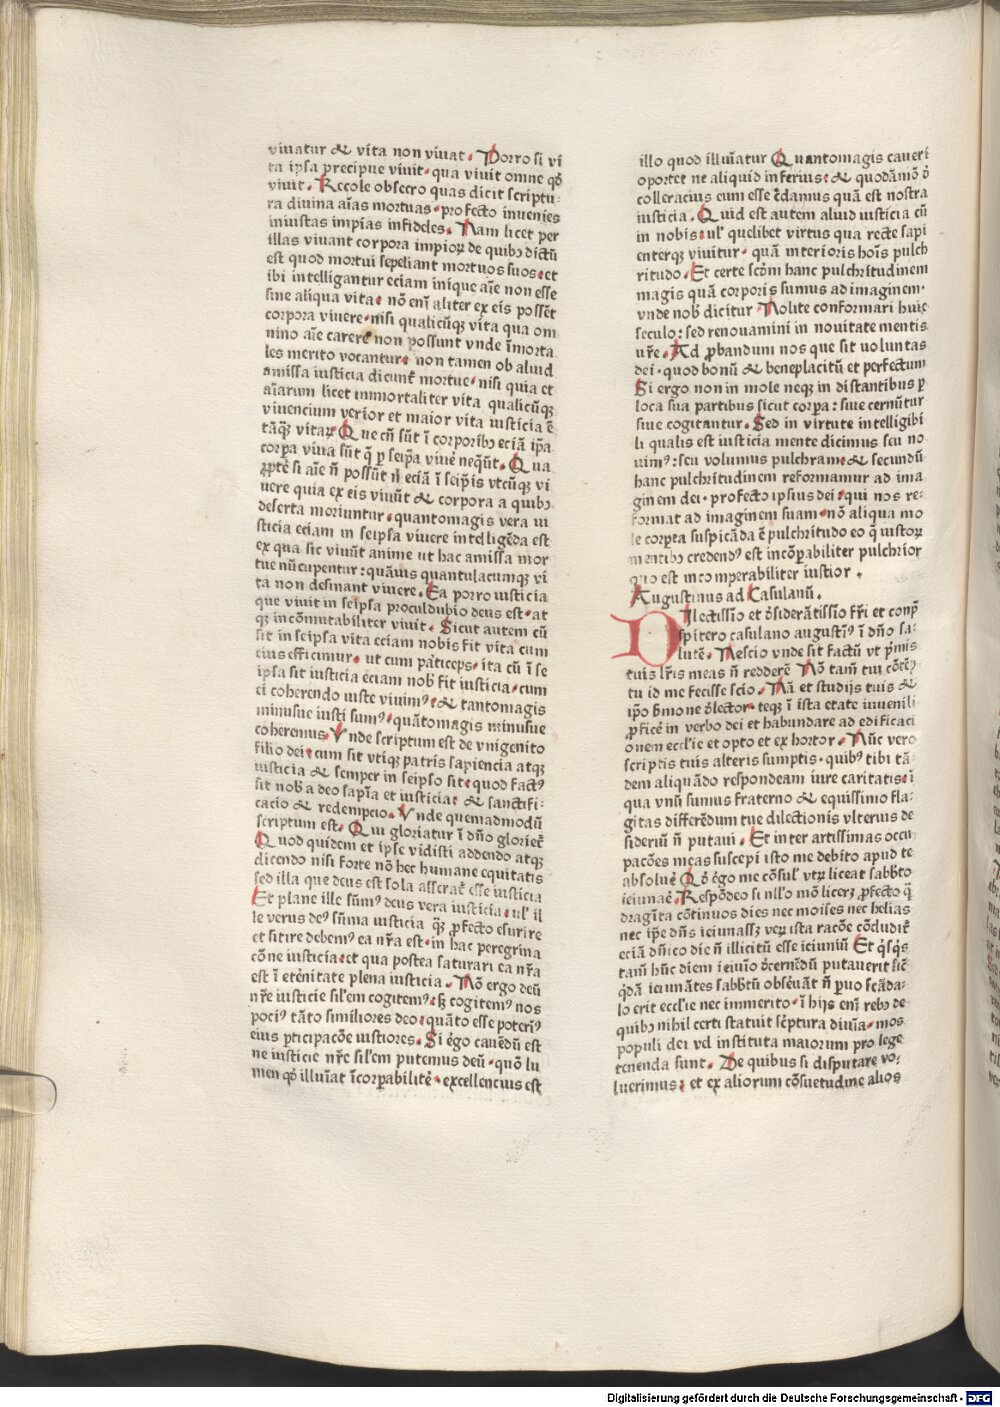 viuatur & vita non viuat. Porro si vi
ta ipsa precipue viuit. qua viuit omne qḋ
viuit. Recole obsecro quas dicit scriptu:
ra diuina aīas mortuas. profecto inuenies
iniustas impias infideles. Nam licet per
illas viuant corpora impioꝝ de quibꝫ dictū
est quod mortui sepeliant mortuos suos: et
ibi intelligantur eciam inique aīe non esse
sine aliqua vita: nō enī aliter ex eis possēt
corpora viuere. nisi qualicūqꝫ vita qua om
nino aīe carere non possunt vnde īmorta
les merito vocantur: non tamen ob aliud
amissa iusticia dicunt̄ mortue. nisi quia et
aīarum licet immortaliter vita qualicūqꝫ
viuencium verior et maior vita iusticia ē
tāqꝫ vitaꝝ. Que cū sūt ī corporibꝫ eciā ip̄a
corpa viua sūt q̄ ꝑ seip̄a viuē neq̄ūt. Qua
ꝓpt̄ si aīe n̄ possūt n̄ eciā ī seip̄is vtcūqꝫ vi
uere quia ex eis viuūt & corpora a quibꝫ
deserta moriuntur. quantomagis vera iu
sticia eciam in seipsa viuere intelligēda est
ex qua sic viuūt anime ut hac amissa mor
tue nūcupentur: quāuis quantulacumqꝫ vi
ta non desinant viuere. Ea porro iusticia
que viuit in seipsa proculdubio deus est. at
qꝫ incōmutabiliter viuit. Sicut autem cū
sit in seipsa vita eciam nobis fit vita cum
eius efficimur. ut cum pāticeps. ita cū ī se
ipsa sit iusticia eciam nob̄ fit iusticia. cum
ei coherendo iuste viuimꝰ: & tantomagis
minusue iusti sumꝰ. quātomagis minusue
coheremus. Vnde scriptum est de vnigenito
filio dei: cum sit vtiqꝫ patris sapiencia atqꝫ
iusticia & semper in seipso sit: quod factꝰ
sit nob̄ a deo sap̄ia et iusticia: & sanctifi:
cacio & redempcio. Vnde quemadmodū
scriptum est. Qui gloriatur ī dn̄o glorieт̄
Quod quidem et ipse vidisti addendo atqꝫ
dicendo nisi forte nō hec humane equitatis
sed illa que deus est sola asserat̄ esse iusticia
Et plane ille sūmꝰ deus vera iusticia. ul' il
le verus deꝰ sūma iusticia qꝫ ꝓfecto esurire
et sitire debemꝰ ea nr̄a est. in hac peregrina
cōne iusticia: et qua postea saturari ea nr̄a
est ī eтēnitate plena iusticia. Nō ergo deū
nr̄e iusticie sil'em cogitemꝰ: sꝫ cogitemꝰ nos
pociꝰ tāto similiores deo: quāto esse poterīꝰ
eius ꝑticipacōe iustiores. Si ēgo cauēdū est
ne iusticie nr̄e sil'em putemus deū. quō lu
men qḋ illuīat īcorpabilitē. excellencius est
illo quod illuīatur Quantomagis caueri
oportet ne aliquid inferius: & quodāmō ḋ
colleracius eum esse c̄damus quā est nostra
iusticia. Quid est autem aliud iusticia cū
in nobis: ul' quelibet virtus qua recte sapi
enterqꝫ viuitur. quā interioris hoīs pulch
ritudo. Et certe scḋm hanc pulchritudinem
magis quā corporis sumus ad imaginem.
vnde nob̄ dicitur Nolite conformari huic
seculo: sed renouamini in nouitate mentis
ur̄e. Ad ꝓbandum nos que sit uoluntas
dei. quod bonū & beneplacitū et perfectum
Si ergo non in mole neqꝫ in distantibus ꝑ
loca sua partibus sicut corpa: siue cernūtur
siue cogitantur. Sed in virtute intelligibi
li qualis est iusticia mente dicimus seu no
uimꝰ: seu volumus pulchram: & secundū
hanc pulchritudinem reformamur ad ima
ginem dei. profecto ipsius dei: qui nos re:
format ad imaginem suam. nō aliqua mo
le corpea suspicāda ē pulchritudo eo q̄ iustoꝝ
mentibꝫ credendꝰ est incōpabiliter pulchrior
quo est incomperabiliter iustior.
Augustinus ad Casulanū.
Dilectissīo et ḋsiderātissīo fr̄i et conp̄
spitero casulano augustīꝰ ī dn̄o sa:
lutē. Nescio vnde sit factū vt p̄mis
tuis lr̄is meas n̄ redderē Nō tam̄ tui cōtēp̄
tu id me fecisse scio. Nā et studijs tuis &
ip̄o ẜmone ḋlector. teqꝫ ī ista etate iuuenili
ꝓficē in verbo dei et habundare ad edificaci
onem eccl'ie et opto et ex hortor. Nūc vero
scriptis tuis alteris sumptis. quibꝰ tibi tā:
dem aliquādo respondeam iure caritatis: ī
qua vnū sumus fraterno & equissimo fla:
gitas differēdum tue dilectionis vlterius de
sideriū n̄ putaui. Et inter artissimas occu
pacōes meas suscepi isto me debito apud te
absoluē Qḋ ēgo me cōsul' vtꝝ liceat sabb̄to
ieiunaē. Respōdeo si nll'o mō licerꝫ ꝓfecto q̄
dragīta cōtinuos dies nec moises nec helias
nec ip̄e dn̄s ieiunassꝫ veꝝ ista racōe cōcludit̄
eciā dn̄ico die n̄ illicitū esse ieiuniū Et q̇sqꝫ
tam̄ hūc diem ieiuīo ḋcernēdū putauerit sic̄
q̇dā ieiunātes sabb̄tū obſeuāt n̄ ꝑuo scāda:
lo erit eccl'ie nec immerito. ī hijs enī rebꝫ de
quibꝫ nihil certi statuit sc̄ptura diuīa. mos
populi dei vel instituta maiorum pro lege
tenenda sunt. De quibus si disputare vo:
luerimus: et ex aliorum cōsuetudine alios
Digitalisierung gefördert durch die Deutsche Forschungsgemeinschaft - DFG